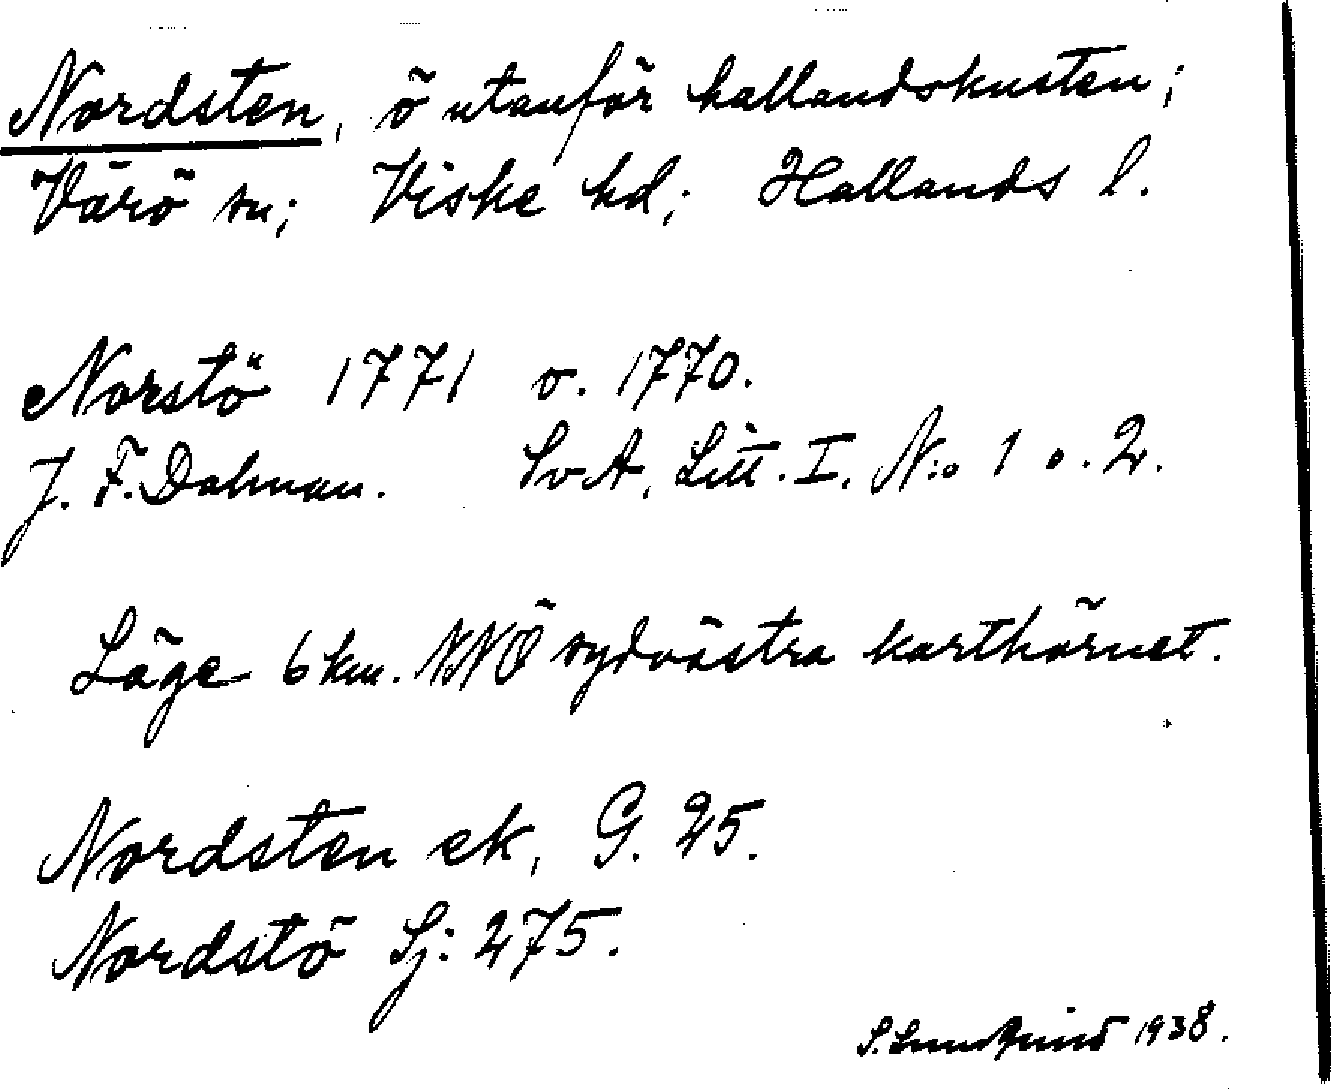 Nordsten, ö utanför hallandskusten;
Värö sn; Viske hd; Hallands l.
Norstö 1771 o. 1770.
J. F. Dalman. SvA, Litt. I. N:o 1 o. 2.
Läge 6 km. NNÖ sydvästra karthörnet.
Nordsten ek, G. 25.
Nordstö Sj: 275.
S. Lundquist 1938.